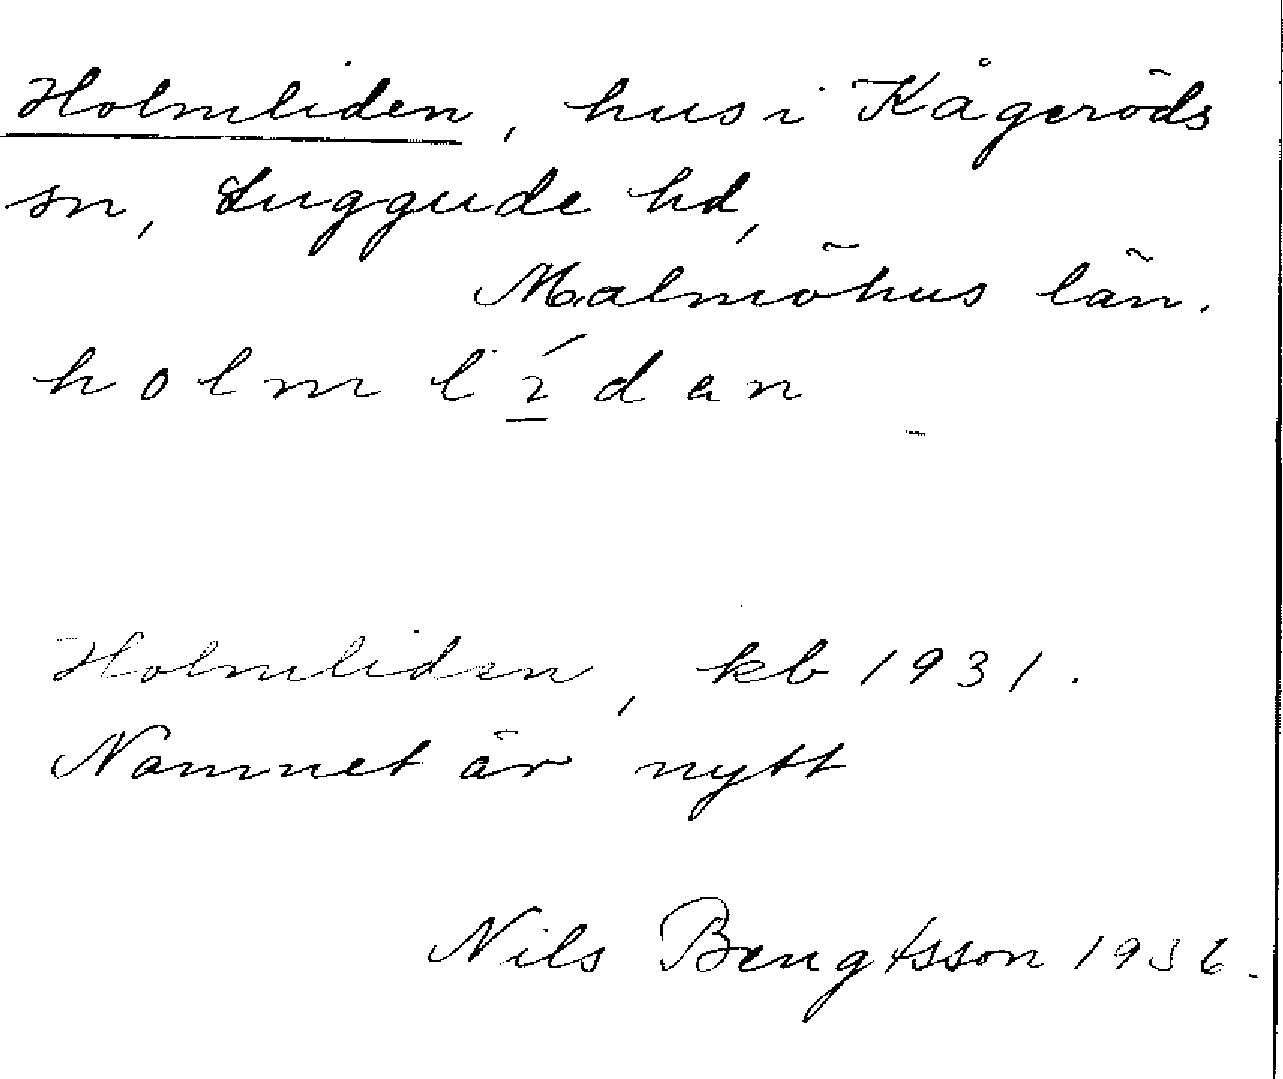 Holmliden, hus i Kågeröds
sn, Luggude hd,
Malmöhus län.
holmlí̲dan
Holmliden, kb 1931.
Namnet är nytt
Nils Bengtsson 1936.